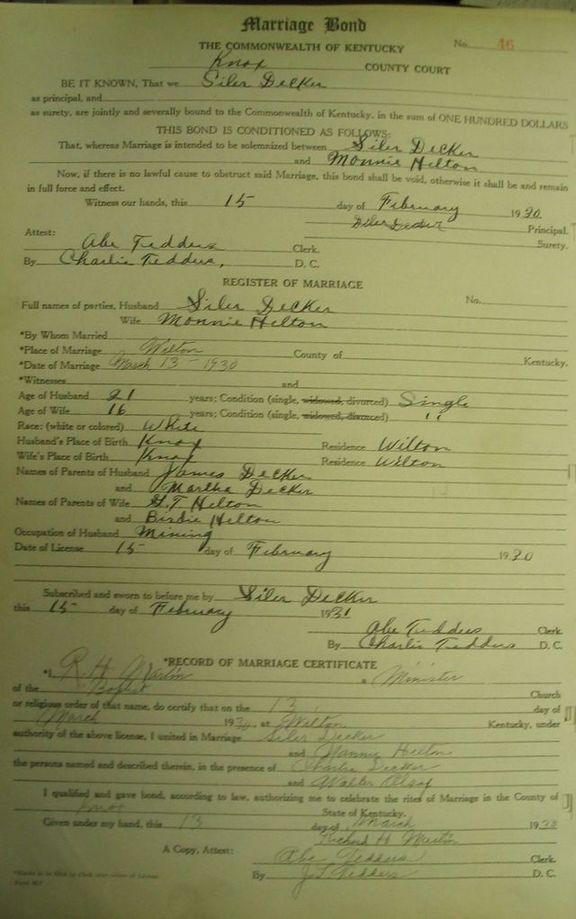 Marriage Bond
THE COMMONWEALTH OF KENTUCKY
No. 46
Knox COUNTY COURT
BE IT KNOWN, That we Siler Decker
as principal, and
as surety, are jointly and severally bound to the Commonwealth of Kentucky, in the sum of ONE HUNDRED DOLLARS
THIS BOND IS CONDITIONED AS FOLLOWS:
That, whereas Marriage is intended to be solemnized between Siler Decker
and Monnie Helton
Now, if there is no lawful cause to obstruct said Marriage, this bond shall be void, otherwise it shall be and remain
in full force and effect.
Witness our hands, this 15 day of February 1930
Siler Decker Principal.
Attest: Surety.
Abe Tedders Clerk.
By Charlie Tedders, D. C.
REGISTER OF MARRIAGE
Full names of parties, Husband Siler Decker No.
Wife Monnie Helton
*By Whom Married
*Place of Marriage Wilton County of Kentucky.
*Date of Marriage March 13 - 1930
*Witnesses and
Age of Husband 21 years; Condition (single, widowed, divorced) Single
Age of Wife 16 years; Condition (single, widowed, divorced) "
Race: (white or colored) White
Husband's Place of Birth Knox Residence Wilton
Wife's Place of Birth Knox Residence Wilton
Names of Parents of Husband James Decker
and Martha Decker
Names of Parents of Wife G.T Helton
and Birdie Helton
Occupation of Husband Mining
Date of License 15 day of February 1930
Subscribed and sworn to before me by Siler Decker
this 15 day of February 1931
Abe Tedders Clerk
By Charlie Tedders D. C.
*RECORD OF MARRIAGE CERTIFICATE
*I, R H Martin a Minister
of the Baptist Church
or religious order of that name, do certify that on the 13 day of
March 1930, at Wilton Kentucky, under
authority of the above license, I united in Marriage Siler Decker
and Helton
the persons named and described therein, in the presence of Charlie Decker
and Walter
I qualified and gave bond, according to law, authorizing me to celebrate the rites of Marriage in the County of
Knox State of Kentucky.
Given under my hand, this 13 day of March 193
Richard H Martin
A Copy, Attest: Abe Tedders Clerk.
By J.T. Tedders D. C.